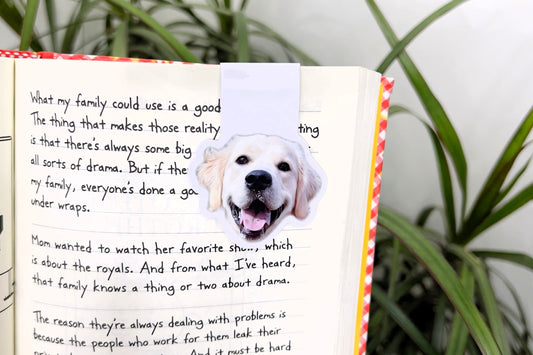 What my family could use is a good
The thing that makes those reality ting
is that there's always some big
all sorts of drama. But if the
my family, everyone's done a
under wraps.
Mom wanted to watch her favorite show, which
is about the royals. And from what I've heard,
that family knows a thing or two about drama.
The reason they're always dealing with problems is
because the people who work for them leak their
And it must be hard